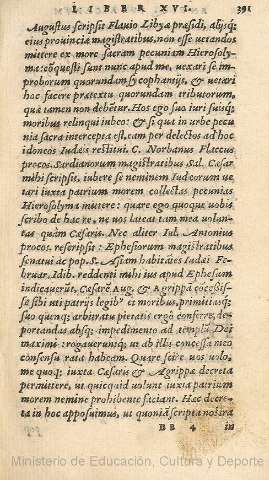 LIBER XVI. 391
Augustus scripsit Flavio Libyæ præsidi, alijsq;
eius provinciæ magistratibus, non esse vetandos
mittere ex more sacram pecuniam Hierosoly-
ma: cõquesti sunt nunc apud me, vexari se im-
proborum quorundam sycophantijs, & vetari
hoc facere prætextu quorundam tributorum,
quæ tamen non debẽtur. Hos ego suo iuri suisq;
moribus relinqui iubeo: & si qua in urbe pecu
nia sacra intercepta est, eam per delectos ad hoc
idoneos Iudæis restitui. C. Norbanus Flaccus
procos. Sardianorum magistratibus Sal. Cæsar
mihi scripsit, iubere se neminem Iudæorum ve
tari iuxta patrium morem collectas pecunias
Hierosolyma mittere: quare ego quoque vobis
scribo de hac re, ne vos lateat tam mea volun-
tas quàm Cæsaris. Nec aliter Iul. Antonius
procos. rescripsit: Ephesiorum magistratibus
senatui ac pop. S. Asiam habitãtes Iudæi Fe-
bruar. Idib. reddenti mihi ius apud Ephesum
indicaverũt, Cæsarẽ Aug. & Agrippã cõcessis-
se sibi uti patrijs legib⁹ et moribus, primitiasq;
suo quenq; arbitratu pietatis ergô conferre, de-
portandas absq; impedimento ad templũ Dei
maximi: rogaveruntq; ut ab illis concessa meo
consensu rata habeam. Quare scire vos volo,
me quoq; iuxta Cæsaris & Agrippæ decreta
permittere, ut quicquid volunt iuxta patrium
morem nemine prohibente faciant. Hæc decre-
ta in hoc apposuimus, ut quoniã scripta nostra
BB 4 in
Ministerio de Educación, Cultura y Deporte